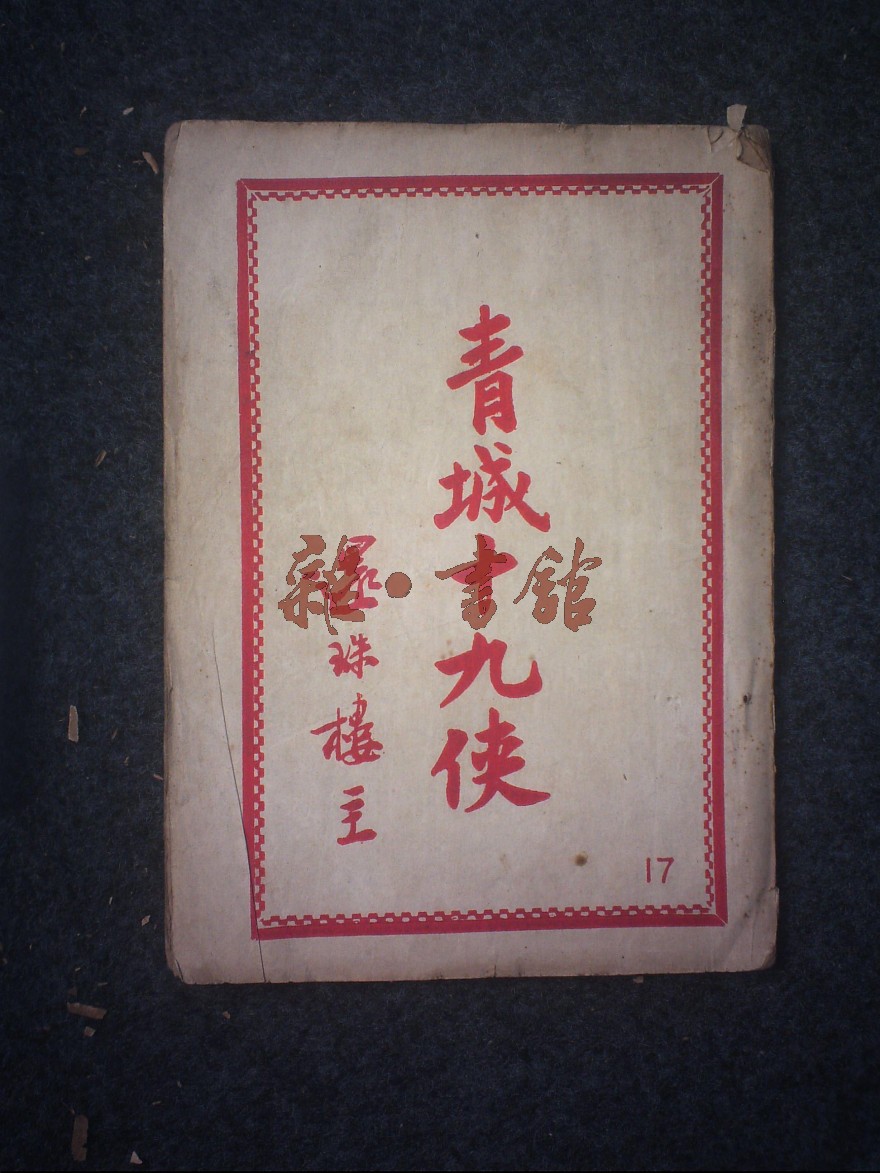 青城十九侠
還珠樓主
雜·書館
17